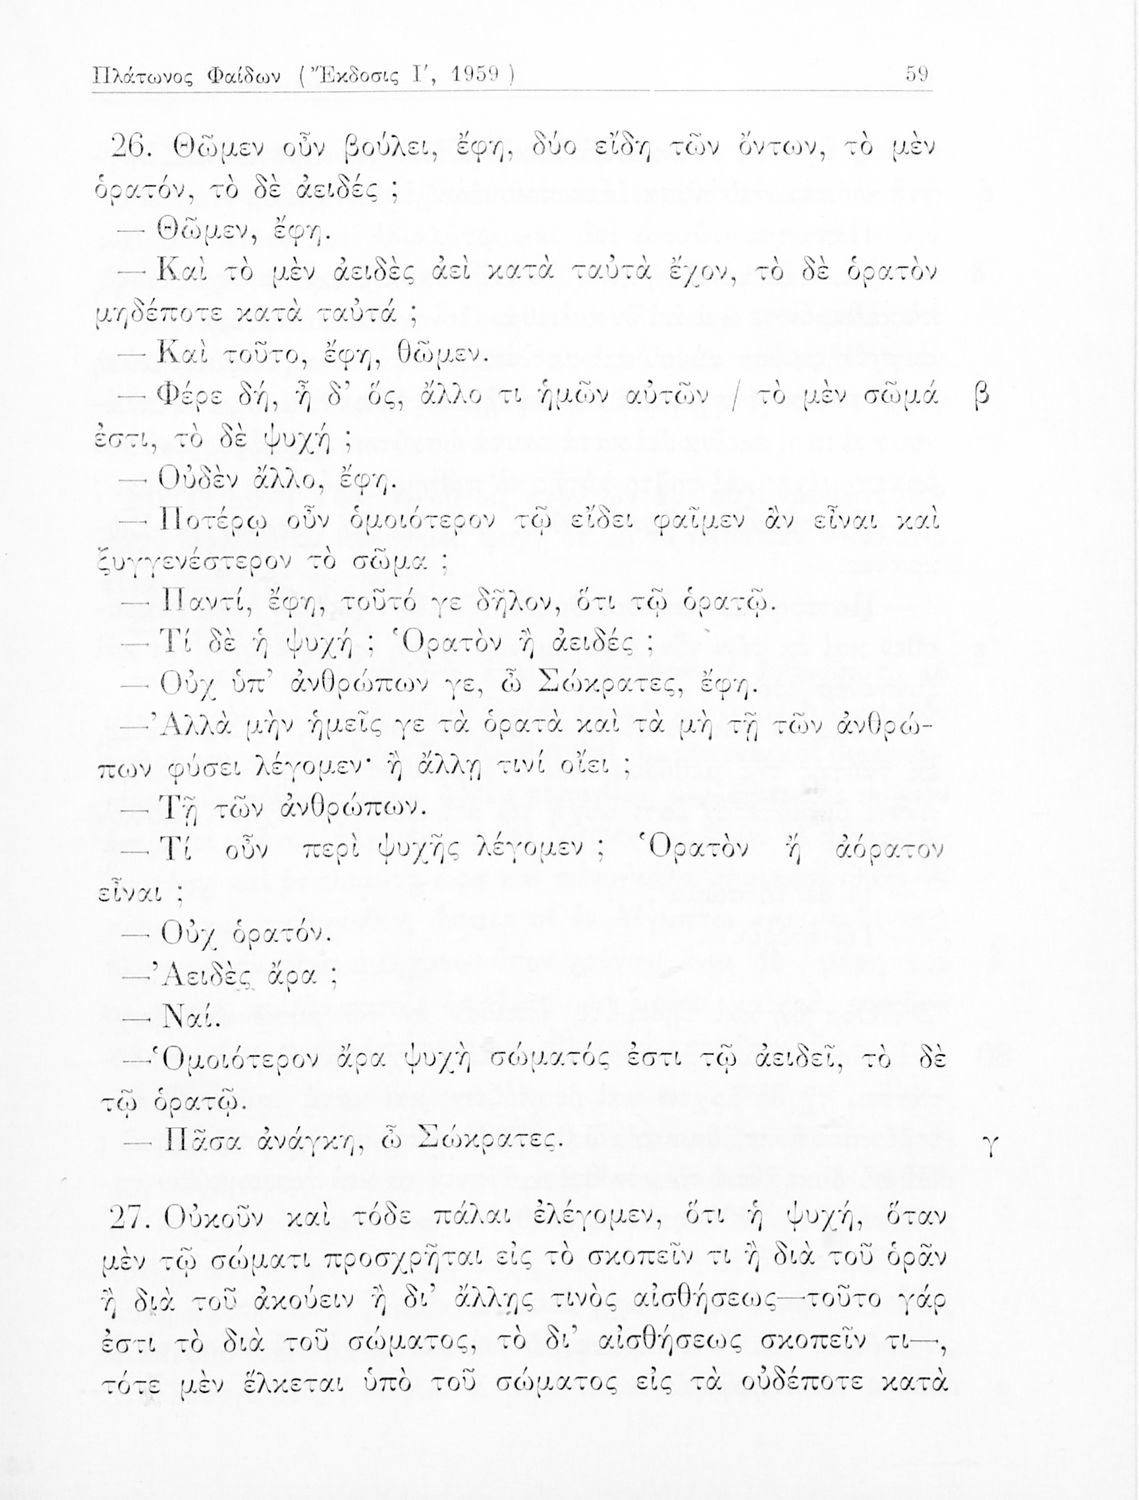 Πλάτωνος Φαίδων ( Ἔκδοσις Ι΄, 1959 ) 59
26. Θῶμεν οὖν βούλει, ἔφη, δύο εἴδη τῶν ὄντων, τὸ μὲν
ὁρατόν, τὸ δὲ ἀειδές ;
— Θῶμεν, ἔφη.
— Καὶ τὸ μὲν ἀειδὲς ἀεὶ κατὰ ταὐτὰ ἔχον, τὸ δὲ ὁρατὸν
μηδέποτε κατὰ ταὐτά ;
— Καὶ τοῦτο, ἔφη, θῶμεν.
— Φέρε δή, ἦ δ’ ὅς, ἄλλο τι ἡμῶν αὐτῶν / τὸ μὲν σῶμά β
ἐστι, τὸ δὲ ψυχή ;
— Οὐδὲν ἄλλο, ἔφη.
— Ποτέρῳ οὖν ὁμοιότερον τῷ εἴδει φαῖμεν ἂν εἶναι καὶ
ξυγγενέστερον τὸ σῶμα ;
— Παντί, ἔφη, τοῦτό γε δῆλον, ὅτι τῷ ὁρατῷ.
— Τί δὲ ἡ ψυχή ; Ὁρατὸν ἢ ἀειδές ;
— Οὐχ ὑπ’ ἀνθρώπων γε, ὦ Σώκρατες, ἔφη.
—Ἀλλὰ μὴν ἡμεῖς γε τὰ ὁρατὰ καὶ τὰ μὴ τῇ τῶν ἀνθρώ-
πων φύσει λέγομεν· ἢ ἄλλῃ τινί οἴει ;
— Τῇ τῶν ἀνθρώπων.
— Τί οὖν περὶ ψυχῆς λέγομεν ; Ὁρατὸν ἤ ἀόρατον
εἶναι ;
— Οὐχ ὁρατόν.
—Ἀειδὲς ἄρα ;
— Ναί.
—Ὁμοιότερον ἄρα ψυχὴ σώματός ἐστι τῷ ἀειδεῖ, τὸ δὲ
τῷ ὁρατῷ.
— Πᾶσα ἀνάγκη, ὦ Σώκρατες. γ
27. Οὐκοῦν καὶ τόδε πάλαι ἐλέγομεν, ὅτι ἡ ψυχή, ὅταν
μὲν τῷ σώματι προσχρῆται εἰς τὸ σκοπεῖν τι ἢ διὰ τοῦ ὁρᾶν
ἢ διὰ τοῦ ἀκούειν ἢ δι’ ἄλλης τινὸς αἰσθήσεως—τοῦτο γάρ
ἐστι τὸ διὰ τοῦ σώματος, τὸ δι’ αἰσθήσεως σκοπεῖν τι—,
τότε μὲν ἕλκεται ὑπὸ τοῦ σώματος εἰς τὰ οὐδέποτε κατὰ